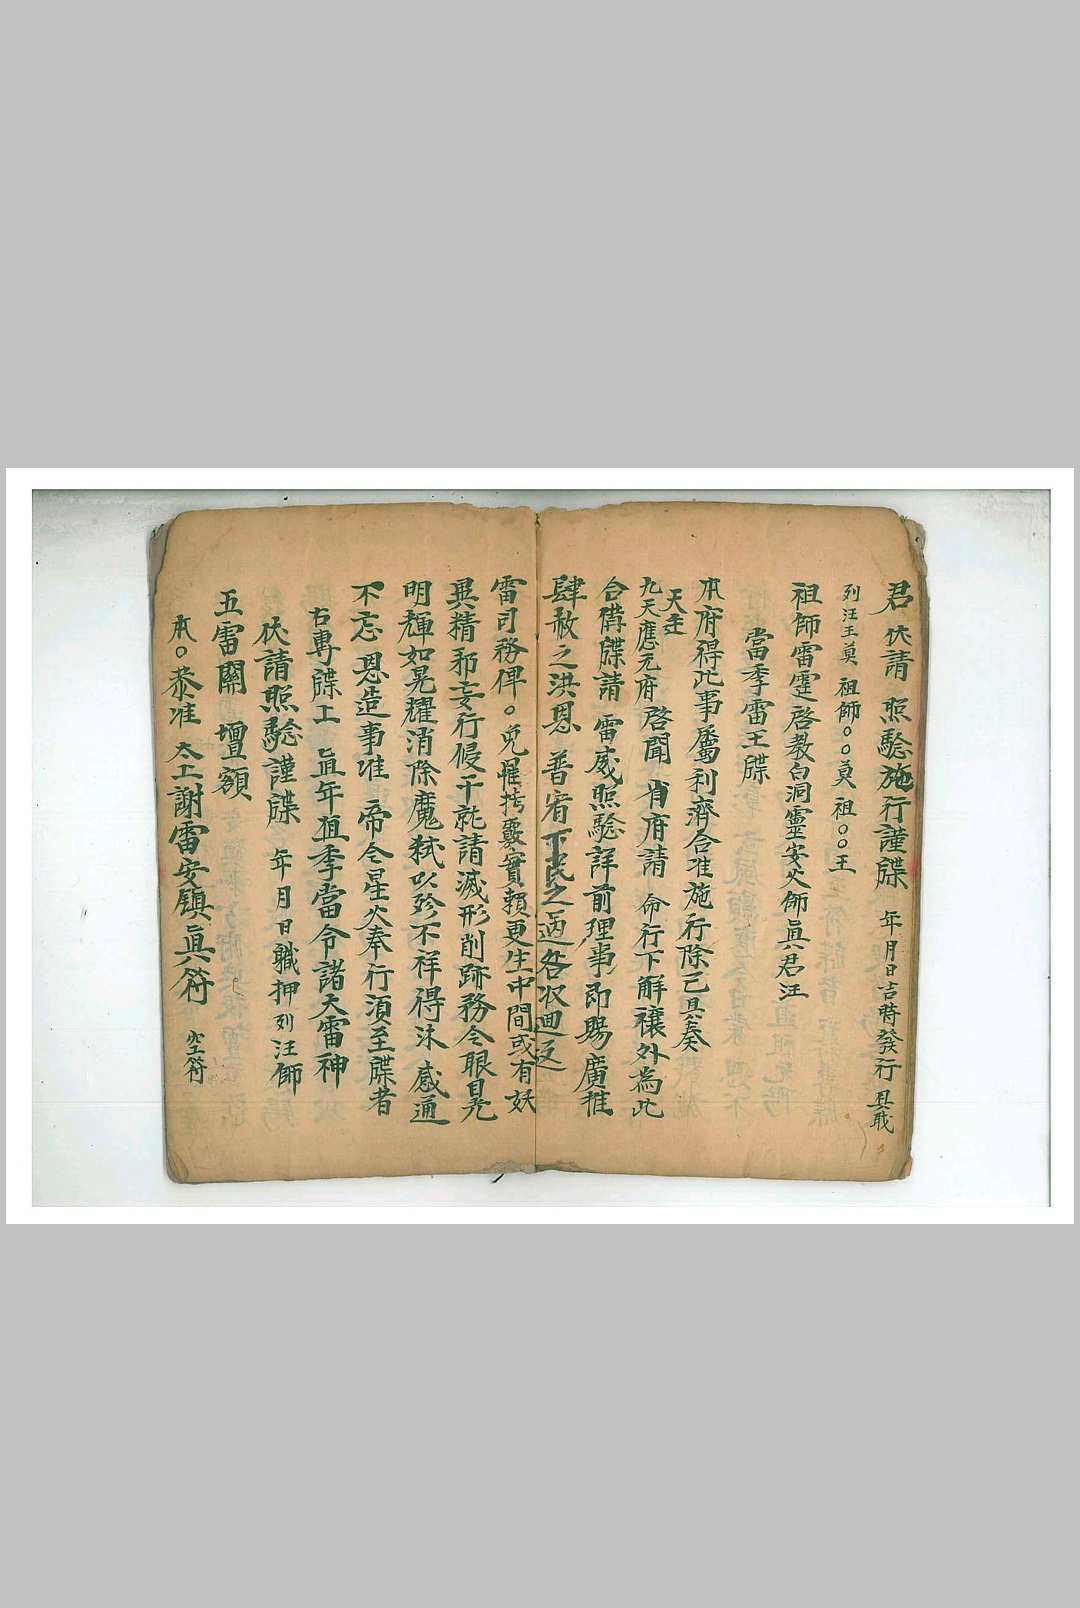 君 伏請 照驗施行謹牒 年月日吉時發行 具戢
列汪王莫 祖師○○莫 祖○○王
祖師雷霆啓教白洞靈安火師眞君汪
當季雷王牒
本府得此事屬利濟合准施行除已具奏
天主
九天應元府 啓聞 省府請 命行下觧禳外為此
合備牒請 雷威照驗詳前理事即賜廣推
肆赦之洪恩 普宥下民之過咎収迴返
雷司務俾○ 免罹拷覈實賴更生中間或有妖
異精邪妄行侵干就請滅形削跡務令眼見
明輝如晃耀消除魔弒以殄不祥得沐 感通
不忘 恩造事准 帝令星火奉行須至牒者
右專牒上 直年直季當令諸大雷神
伏請照驗謹牒 年月日職押列汪師
五雷關 壇額
本○恭准 太上謝雷安鎮眞符 空符